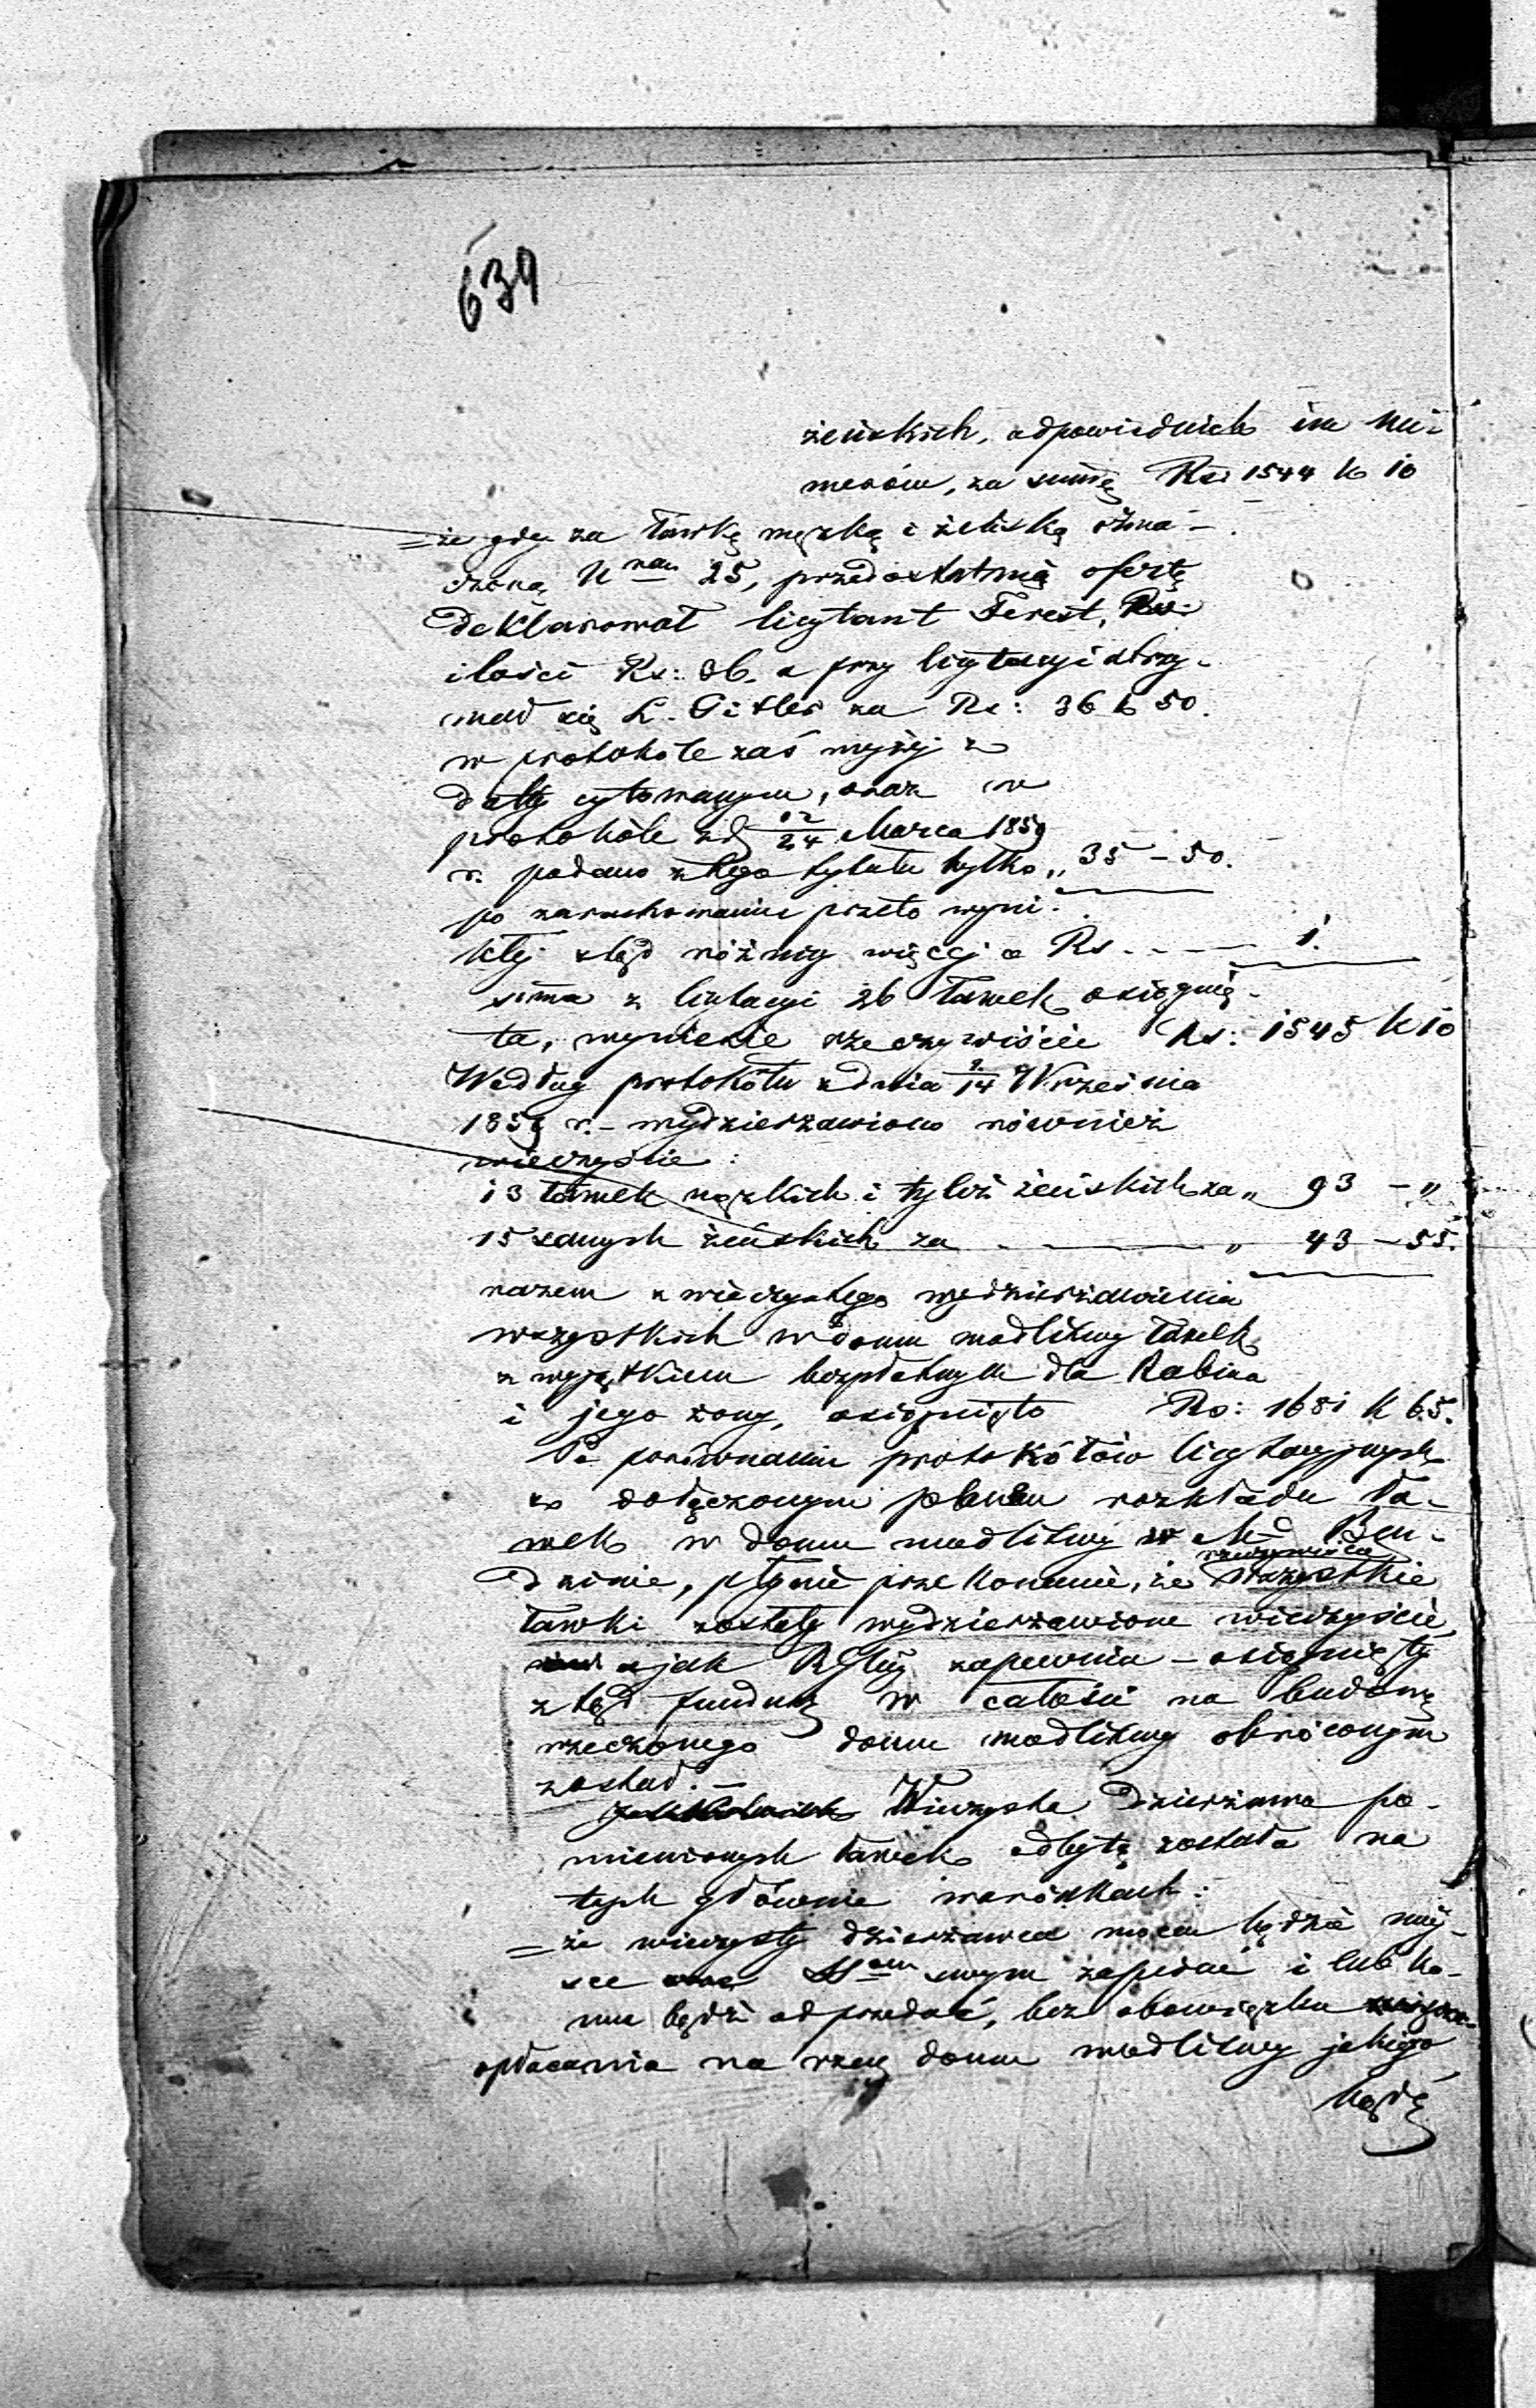 639
żeńskich, odpowiednich im nu-
merów, za summę Rs. 1544 k 10
= że gdy za ławkę męzką i żeńską ozna-
czoną Nrem 25, przedostatnią ofertę
deklarował licytant Ferest,
ilości Rs: 36, a przy licytacyi utrzy-
mał się L. Gitler za Rs: 36 k 50.
w protokole zaś wyżej z
daty cytowanym, oraz w
protokóle z d 12/24 Marca 1859
r. podano z tego tytułu tylko „ 35 – 50.
po zarachowaniu przeto wyni-
kłej ztąd różnicy więcej o Rs. – – – 1.
suma z licytacyi 26 ławek osiągnię-
ta, wyniesie rzeczywiście Rs: 1545 k 10
Według protokółu z dnia 2/14 Września
1859 r. – wydzierżawiono również
wieczyście:
13 ławek męzkich i tyleż żeńskich za „ 93 – „
15 samych żeńskich za – – „ 43 – 55.
razem z wieczystego wydzierżawienia
wszystkich w domu modlitwy ławek
z wyjątkiem bezpłatnych dla Rabina
i jego żony, osiągnięto Rs: 1681 k 65.
Po porównaniu protokółów licytacyjnych
z dołączonym planem rozkładu ła-
wek w domu modlitwy w Md Ben-
dzinie, płynie przekonanie, że rzeczywiście wszystkie
ławki zostały wydzierżawione wieczyście,
a jak zapewnia – osiągnięty
ztąd fundusz w całości na budowę
rzeczonego domu modlitwy obróconym
został. –
Wieczysta dzierżawa po-
mienionych ławek odbytą została na
tych głównie warunkach:
= że wieczysty dzierżawca mocen będzie miej-
sce swym zapisać i lub ko-
mu bądź odprzedać, bez obowiązku
opłacania na rzecz domu modlitwy jakiego
bądź